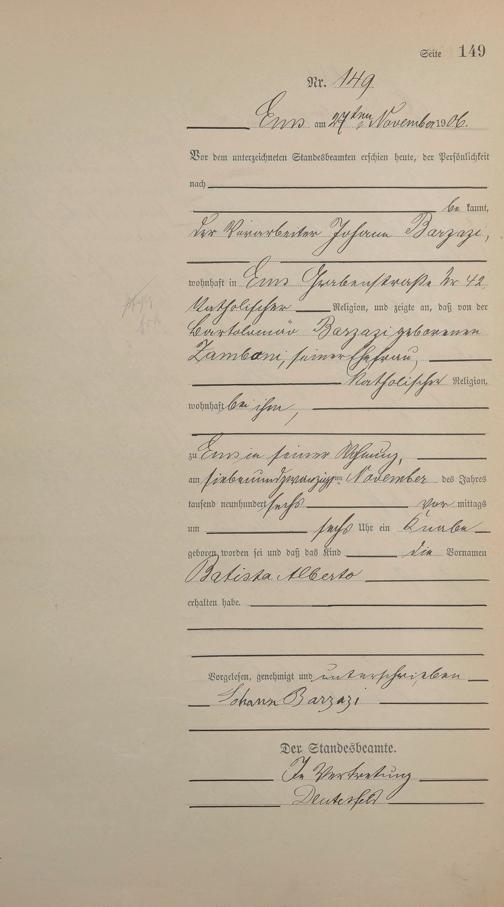 Seite 149
Nr. 149.
Ems am 27ten November 1906.
Vor dem unterzeichneten Standesbeamten erschien heute, der Persönlichkeit
nach
be kannt,
der Vorarbeiter Johann Barzazi,
wohnhaft in Ems Grabenstraße Nr 42,
katholischer Religion, und zeigte an, daß von der
Bartolomäa Barzazi geborenen
Zamboni, seiner Ehefrau,
katholischer Religion,
wohnhaft bei ihm,
zu Ems in seiner Wohnung,
am siebenundzwanzigsten November des Jahres
tausend neunhundert sechs vor mittags
um sechs Uhr ein Knabe
geboren worden sei und daß das Kind die Vornamen
Batista Alberto
erhalten habe.
Vorgelesen, genehmigt und unterschrieben
Johann Barzazi
Der Standesbeamte.
In Vertretung